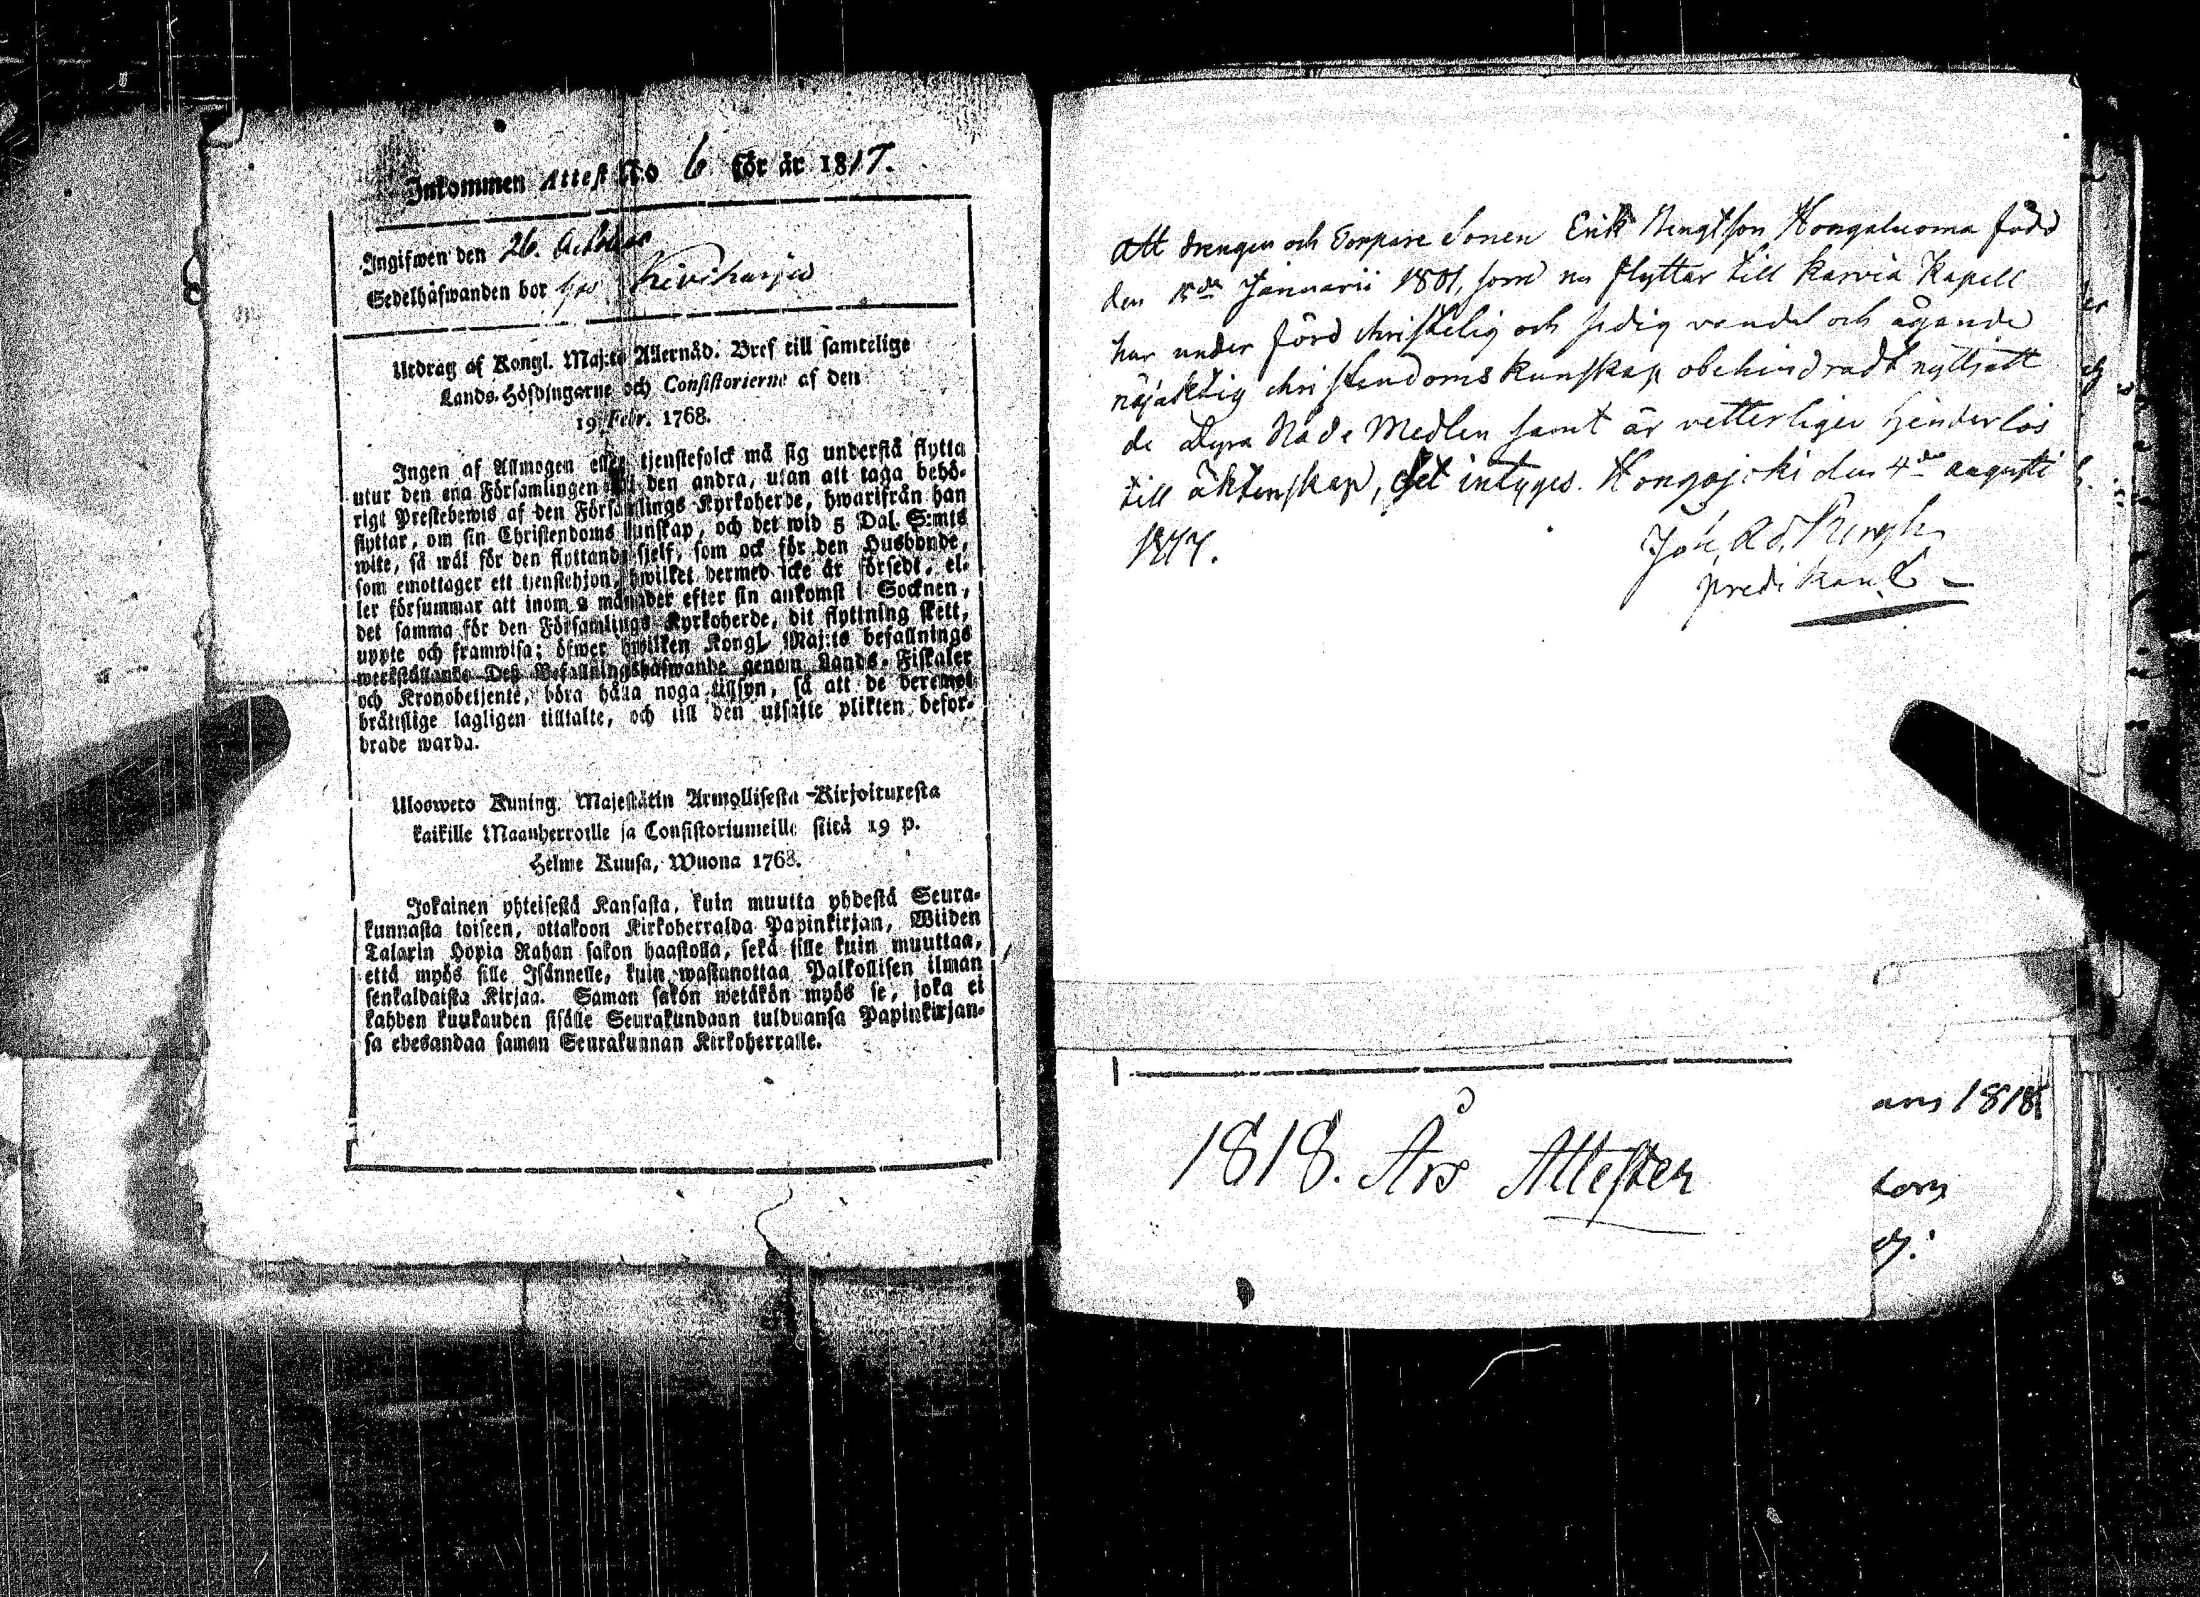 Inkommen Attest No 6 för år 1817.
Ingifwen den 26. October
Sedelhäfwanden bor hos Kiviharju
Utdrag af Kongl. Maj:ts Allernåd. Bref till samtelige
Lands-Höfdingarne och Consistorierne af den
19 Febr. 1768.
Ingen af Allmogen eller tjenstefolck må sig understå flytta
utur den ena Församlingen till den andra, utan att taga behö-
rigt Prestebewis af den Församlings Kyrkoherde, hwarifrån han
flyttar, om sin Christendoms kunskap, och det wid 5 Dal. S:mts
wite, så wäl för den flyttande sjelf, som ock för den Husbonde,
som emottager ett tjenstehjon, hwilket dermed icke är försedt, el-
ler försummar att inom 2 månader efter sin ankomst i Socknen,
det samma för den Församlings Kyrkoherde, dit flyttning skett,
uppte och framwisa; öfwer hwilken Kongl. Maj:ts befallnings
werkställande Deß Befallningshafwande genom Lands-Fiskaler
och Kronobetjente, böra hålla noga tillsyn, så att de deremot
bråttslige lagligen tilltalte, och till den utsatte plikten befor-
drade warda.
Ulosweto Kuning. Majestätin Armollisesta Kirjoituxesta
kaikille Maanherroille ja Consistoriumeille siitä 19 p.
Helme Kuusa, Wuona 1768.
Jokainen yhteisestä Kansasta, kuin muutta yhdestä Seura-
kunnasta toiseen, ottakoon Kirkoherralda Papinkirjan, Wiiden
Talarin Hopia Rahan sakon haastolla, sekä sille kuin muuttaa,
että myös sille Isännelle, kuin wastanottaa Palkollisen ilman
senkaldaista Kirjaa. Saman sakon wetäkön myös se, joka ei
kahden kuukauden sisälle Seurakundaan tulduansa Papinkirjan-
sa edesandaa saman Seurakunnan Kirkoherralle.
Att drengen och Torpare Sonen Erik Bengtson Hongaluoma född
den 15de Januarii 1801, som nu flyttar till Karvia Kapell
har under förd christelig och sedig vandel och ägande
nöjaktig christendoms kunskap obehindradt nyttjatt
de Dyra Nåde Medlen samt är vetterligen hinderlös
till äktenskap, det intyges. Hongojoki den 4de augusti
1817.
Joh. Ad.
predikant
1818. Års Attester
1818